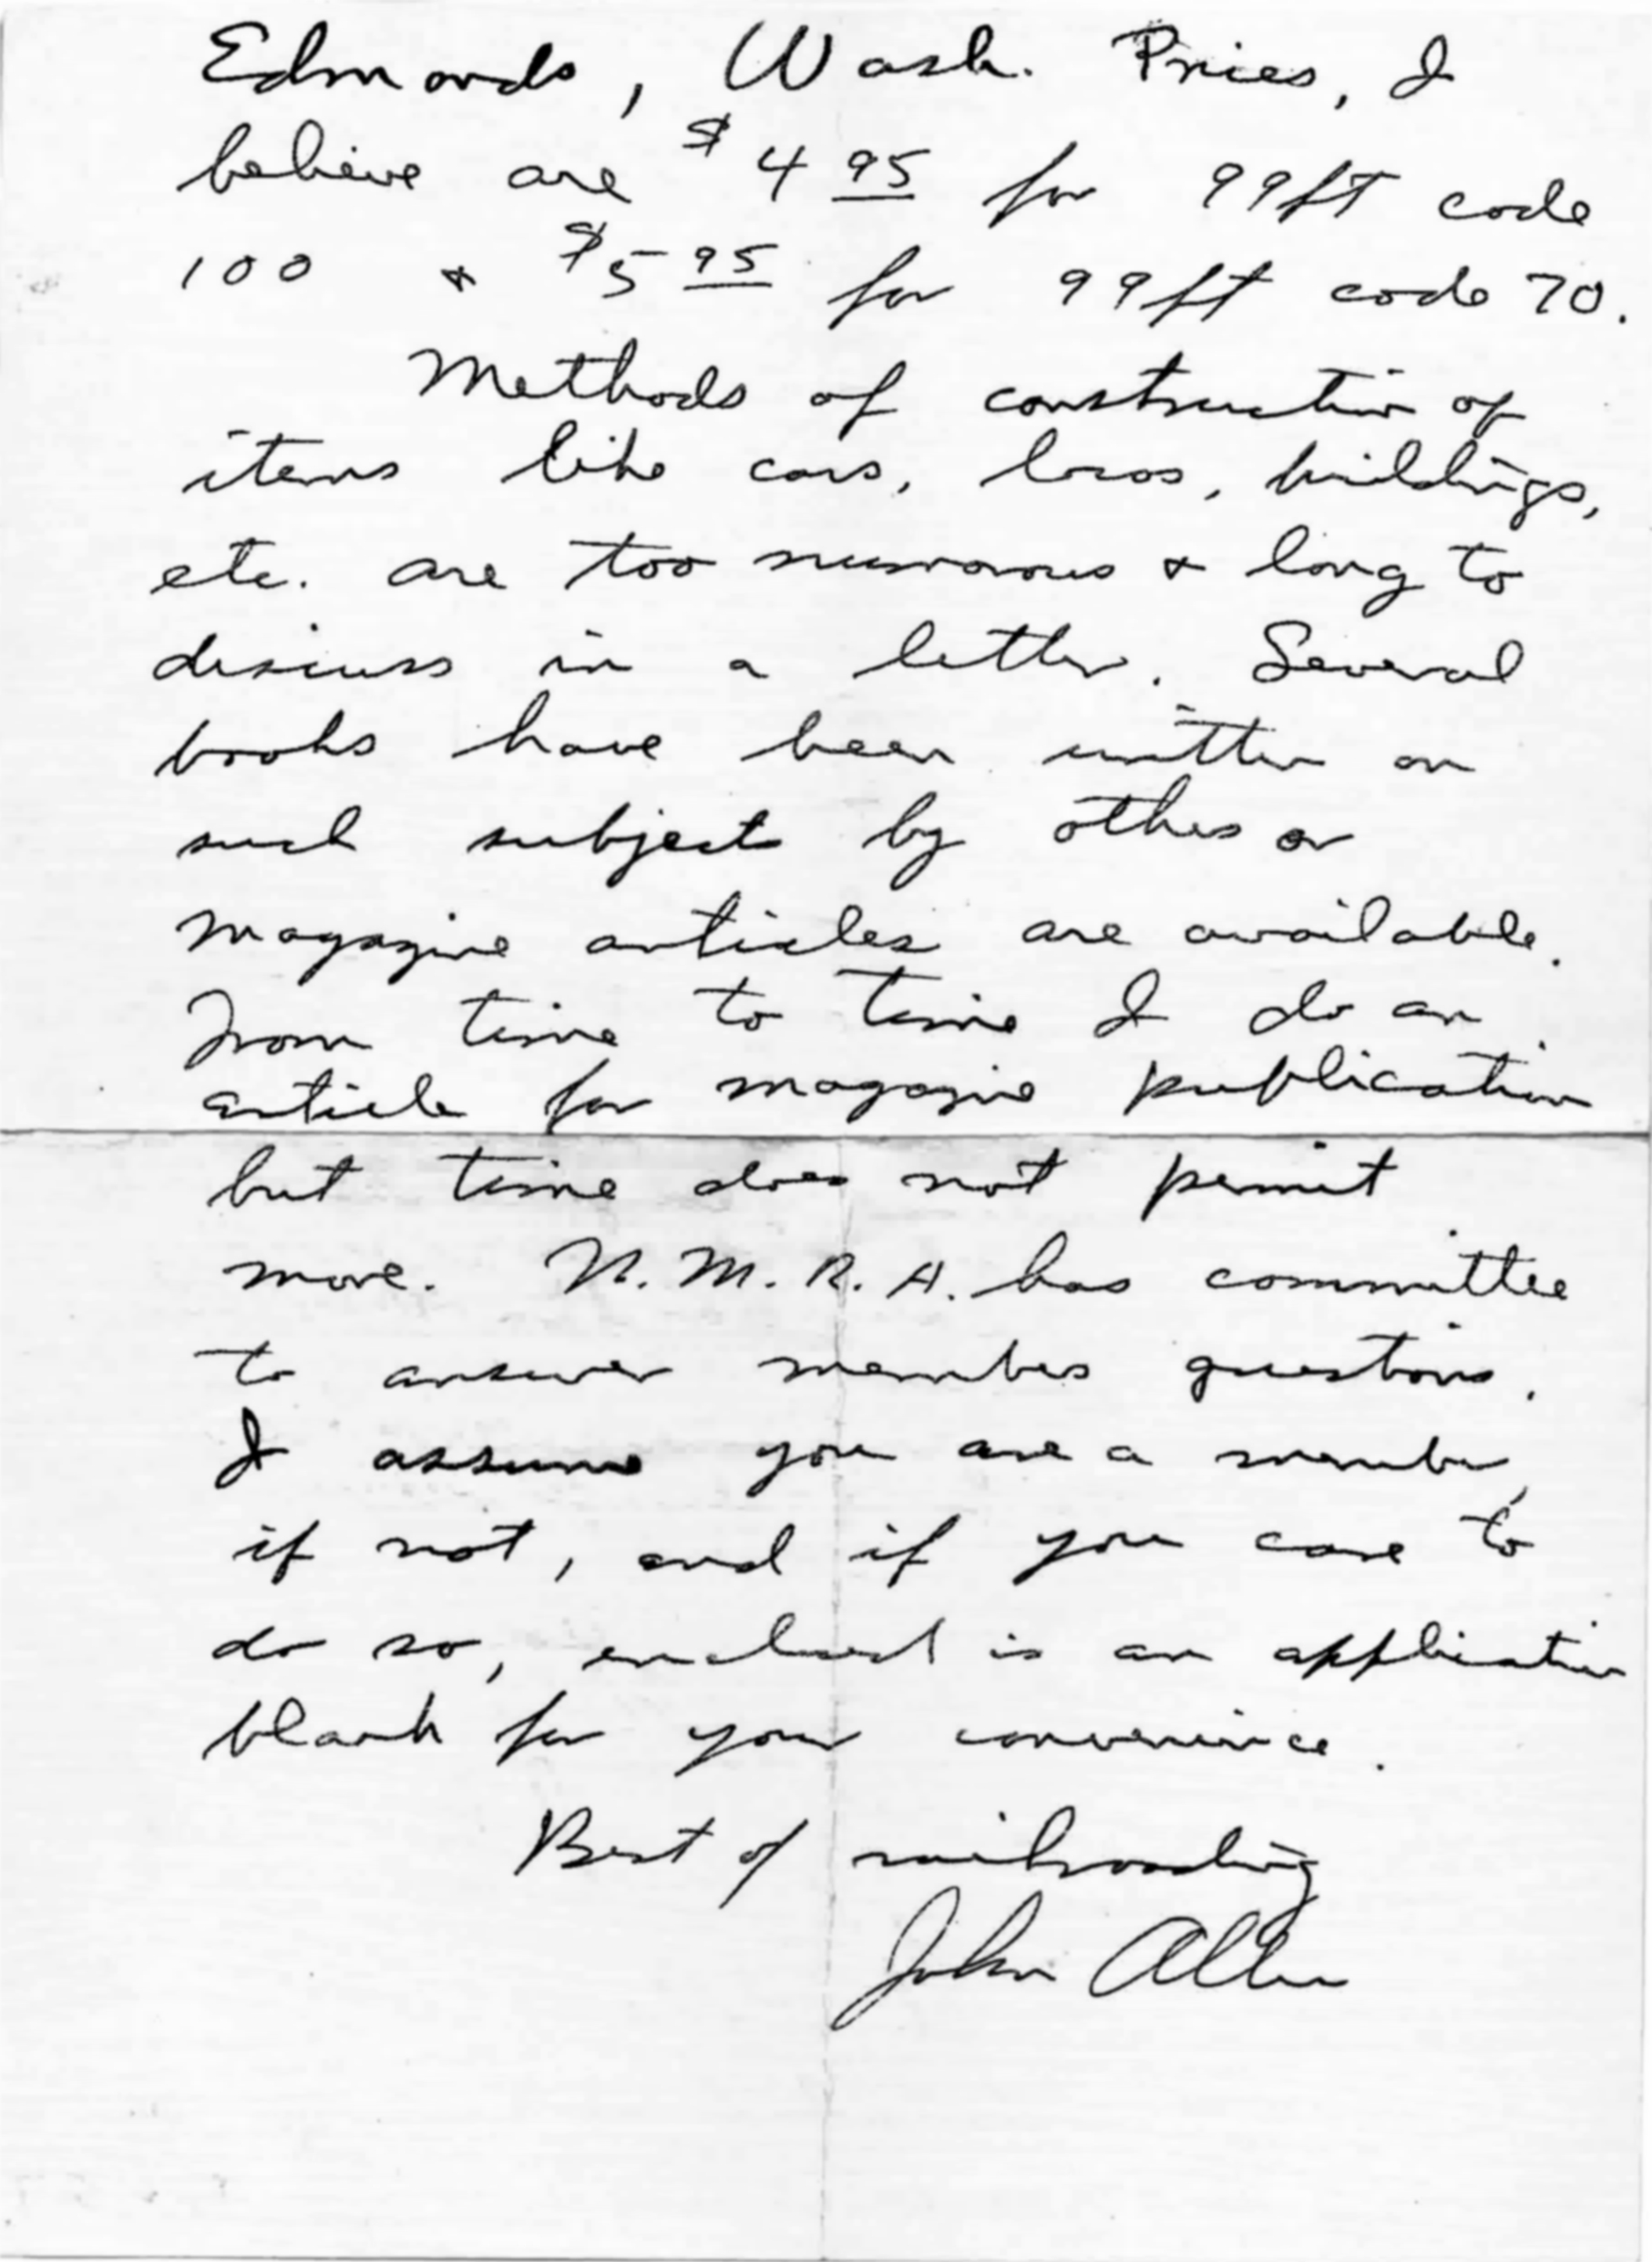 Edmonds, Wash. Prices, I
believe are $4 95 for 99ft code
100 & $5 95 for 99ft code 70.
Methods of construction of
items like cars, locos, buildings,
etc. are too numorous & long to
discuss in a letter. Several
books have been written on
such subjects by others or
magazine articles are available.
From time to time I do an
article for magazine publication
but time does not permit
more. N.M.R.A. has committee
to answer members questions.
I assume you are a member,
if not, and if you care to
do so, enclosed is an application
blank for your convenience.
Best of railroading
John Allen